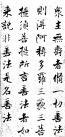 衆生無壽者修一切善法
則得阿耨多羅三藐三菩
提須菩提所言善法者如
來說即非善法是名善法